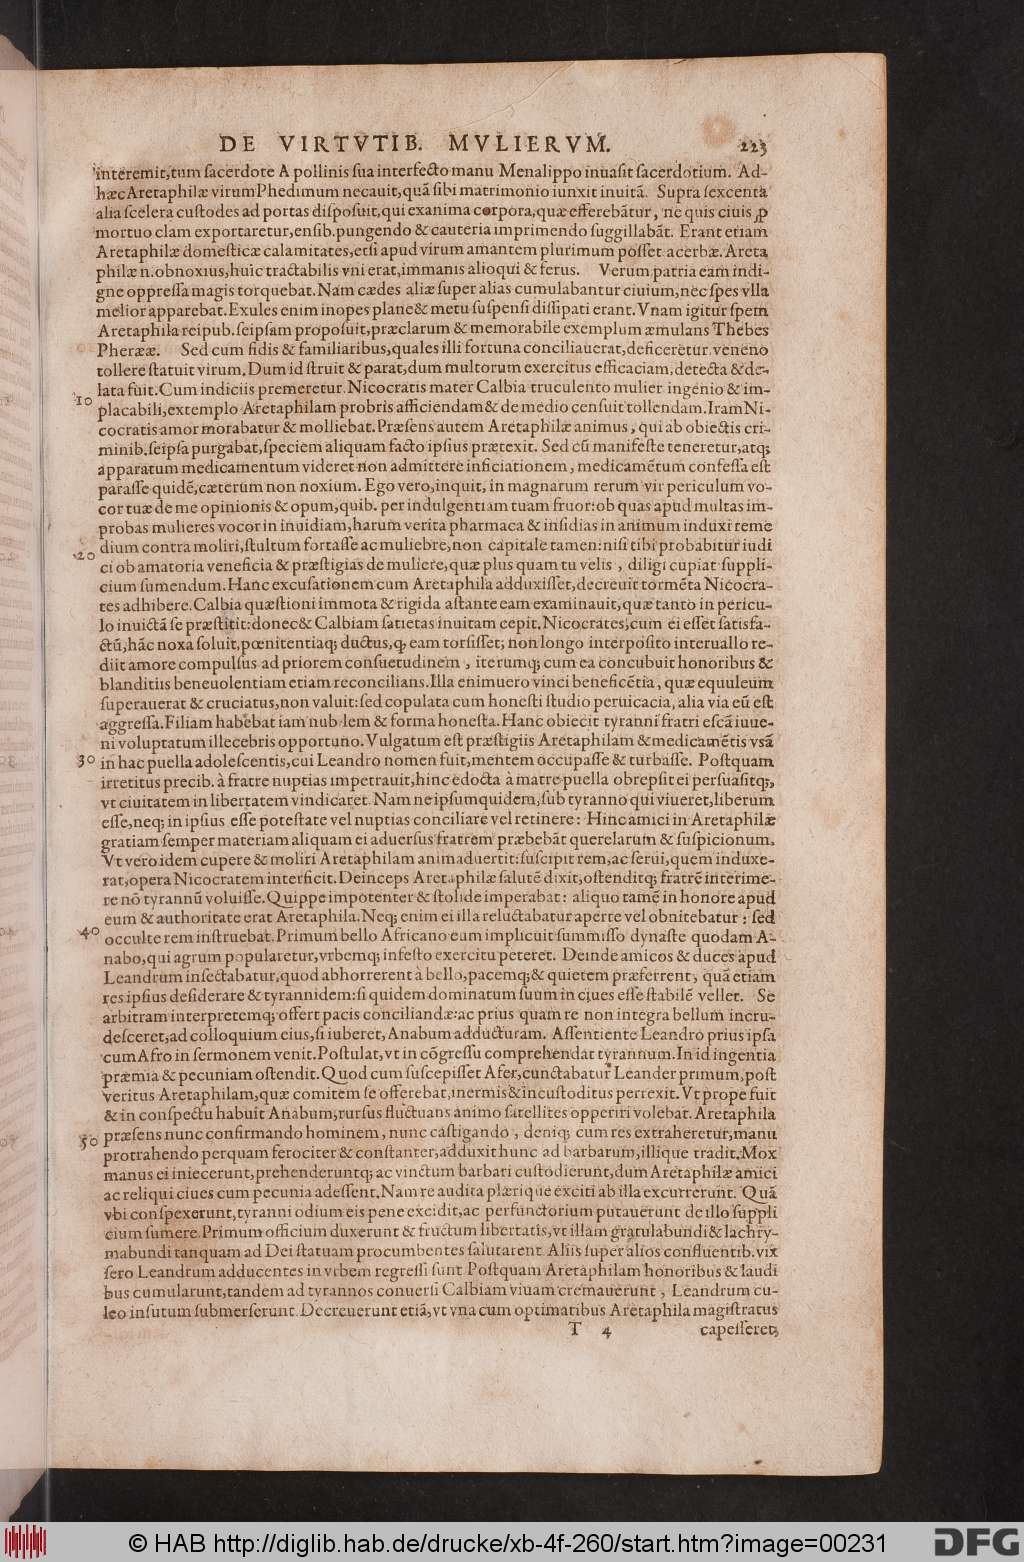 DE VIRTVTIB. MVLIERVM. 223
interemit, tum sacerdote Apollinis sua interfecto manu Menalippo inuasit sacerdotium. Ad-
hæc Aretaphilæ virum Phedimum necauit, quã sibi matrimonio iunxit inuitã. Supra sexcenta
alia scelera custodes ad portas disposuit, qui exanima corpora, quæ efferebãtur, ne quis ciuis ꝓ
mortuo clam exportaretur, ensib. pungendo & cauteria imprimendo suggillabãt. Erant etiam
Aretaphilæ domesticæ calamitates, etsi apud virum amantem plurimum posset acerbæ. Areta
philæ n. obnoxius, huic tractabilis vni erat, immanis alioqui & ferus. Verum patria eam indi-
gne oppressa magis torquebat. Nam cædes aliæ super alias cumulabantur ciuium, nec spes vlla
melior apparebat. Exules enim inopes plane & metu suspensi dissipati erant. Vnam igitur spem
Aretaphila reipub. seipsam proposuit, præclarum & memorabile exemplum æmulans Thebes
Pherææ. Sed cum fidis & familiaribus, quales illi fortuna conciliauerat, deficeretur veneno
tollere statuit virum. Dum id struit & parat, dum multorum exercitus efficaciam, detecta & de-
lata fuit. Cum indiciis premeretur Nicocratis mater Calbia truculento mulier ingenio & im-
10 placabili, extemplo Aretaphilam probris afficiendam & de medio censuit tollendam. Iram Ni-
cocratis amor morabatur & molliebat. Præsens autem Aretaphilæ animus, qui ab obiectis cri-
minib. seipsa purgabat, speciem aliquam facto ipsius prætexit. Sed cũ manifeste teneretur, atq;
apparatum medicamentum videret non admittere inficiationem, medicamẽtum confessa est
parasse quidẽ, cæterum non noxium. Ego vero, inquit, in magnarum rerum vir periculum vo-
cor tuæ de me opinionis & opum, quib. per indulgentiam tuam fruor: ob quas apud multas im-
probas mulieres vocor in inuidiam, harum verita pharmaca & insidias in animum induxi reme
20 dium contra moliri, stultum fortasse ac muliebre, non capitale tamen: nisi tibi probabitur iudi
ci ob amatoria veneficia & præstigias de muliere, quæ plus quam tu velis, diligi cupiat suppli-
cium sumendum. Hanc excusationem cum Aretaphila adduxisset, decreuit tormẽta Nicocra-
tes adhibere. Calbia quæstioni immota & rigida astante eam examinauit, quæ tanto in pericu-
lo inuictã se præstitit: donec & Calbiam satietas inuitam cepit. Nicocrates, cum ei esset satisfa-
ctũ, hãc noxa soluit, pœnitentiaq; ductus, ꝙ eam torsisset; non longo interposito interuallo re-
diit amore compulsus ad priorem consuetudinem, iterumq; cum ea concubuit honoribus &
blanditiis beneuolentiam etiam reconcilians. Illa enimuero vinci beneficẽtia, quæ equuleum
superauerat & cruciatus, non valuit: sed copulata cum honesti studio peruicacia, alia via eũ est
aggressa. Filiam habebat iam nubilem & forma honesta. Hanc obiecit tyranni fratri escã iuue-
ni voluptatum illecebris opportuno. Vulgatum est præstigiis Aretaphilam & medicamẽtis vsã
30 in hac puella adolescentis, cui Leandro nomen fuit, mentem occupasse & turbasse. Postquam
irretitus precib. à fratre nuptias impetrauit, hinc edocta à matre puella obrepsit ei persuasitq;,
vt ciuitatem in libertatem vindicaret. Nam ne ipsum quidem, sub tyranno qui viueret, liberum
esse, neq; in ipsius esse potestate vel nuptias conciliare vel retinere: Hinc amici in Aretaphilæ
gratiam semper materiam aliquam ei aduersus fratrem præbebãt querelarum & suspicionum.
Vt vero idem cupere & moliri Aretaphilam animaduertit: suscipit rem, ac serui, quem induxe-
rat, opera Nicocratem interficit. Deinceps Aretaphilæ salutẽ dixit, ostenditq; fratrẽ interime-
re nõ tyrannũ voluisse. Quippe impotenter & stolide imperabat: aliquo tamẽ in honore apud
eum & authoritate erat Aretaphila. Neq; enim ei illa reluctabatur aperte vel obnitebatur: sed
40 occulte rem instruebat. Primum bello Africano eum implicuit summisso dynaste quodam A-
nabo, qui agrum popularetur, vrbemq; infesto exercitu peteret. Deinde amicos & duces apud
Leandrum insectabatur, quod abhorrerent à bello, pacemq; & quietem præferrent, quã etiam
res ipsius desiderare & tyrannidem: si quidem dominatum suum in ciues esse stabilẽ vellet. Se
arbitram interpretemq; offert pacis conciliandæ: ac prius quam re non integra bellum incru-
desceret, ad colloquium eius, si iuberet, Anabum adducturam. Assentiente Leandro prius ipsa
cum Afro in sermonem venit. Postulat, vt in cõgressu comprehendat tyrannum. In id ingentia
præmia & pecuniam ostendit. Quod cum suscepisset Afer, cunctabatur Leander primum, post
veritus Aretaphilam, quæ comitem se offerebat, inermis & incustoditus perrexit. Vt prope fuit
& in conspectu habuit Anabum, rursus fluctuans animo satellites opperiri volebat. Aretaphila
50 præsens nunc confirmando hominem, nunc castigando, deniq; cum res extraheretur, manu
protrahendo perquam ferociter & constanter, adduxit hunc ad barbarum, illique tradit. Mox
manus ei iniecerunt, prehenderuntq; ac vinctum barbari custodierunt, dum Aretaphilæ amici
ac reliqui ciues cum pecunia adessent. Nam re audita plærique exciti ab illa excurrerunt. Quã
vbi conspexerunt, tyranni odium eis pene excidit, ac perfunctorium putauerunt de illo suppli
cium sumere. Primum officium duxerunt & fructum libertatis, vt illam gratulabundi & lachry-
mabundi tanquam ad Dei statuam procumbentes salutarent. Aliis super alios confluentib. vix
sero Leandrum adducentes in vrbem regressi sunt. Postquam Aretaphilam honoribus & laudi
bus cumularunt, tandem ad tyrannos conuersi Calbiam viuam cremauerunt, Leandrum cu-
leo insutum submerserunt. Decreuerunt etiã, vt vna cum optimatibus Aretaphila magistratus
T 4 capesseret,
© HAB http://diglib.hab.de/drucke/xb-4f-260/start.htm?image=00231
DFG